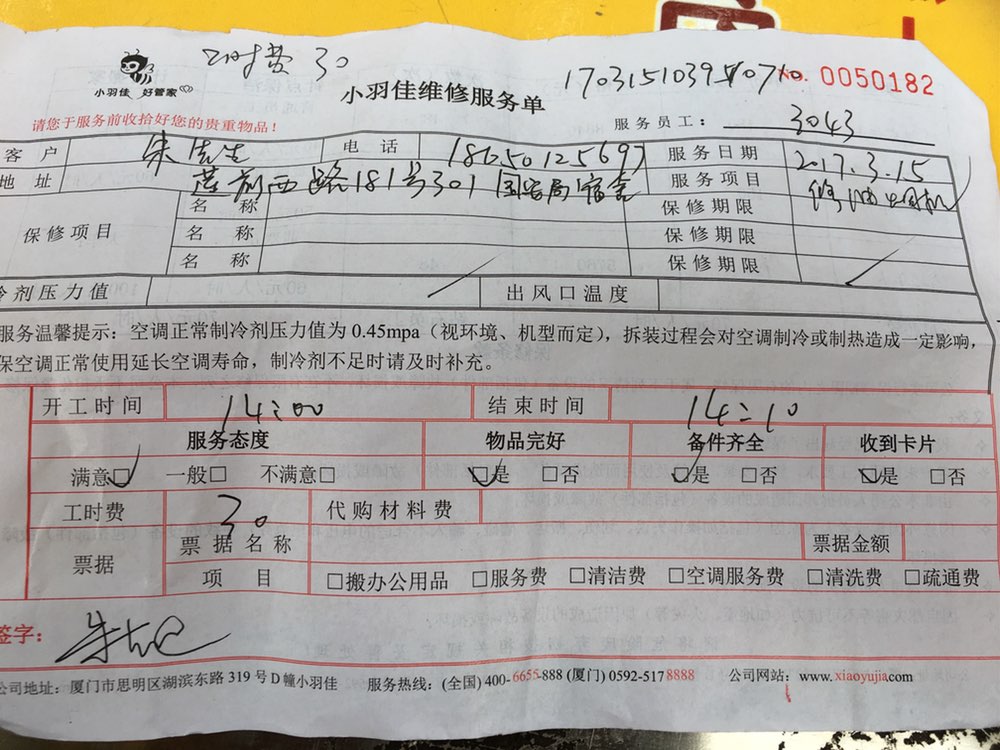 工时费 30
小羽佳 好管家
小羽佳维修服务单
No. 0050182
请您于服务前收拾好您的贵重物品！
服务员工： 3043
客户 朱先生 电话 18650125697 服务日期 2017.3.15
地址 莲前西路181号301 国安局宿舍 服务项目 修油烟机
保修项目 名称 保修期限
名称 保修期限
名称 保修期限
冷剂压力值 出风口温度
服务温馨提示：空调正常制冷剂压力值为 0.45mpa（视环境、机型而定），拆装过程会对空调制冷或制热造成一定影响，
保空调正常使用延长空调寿命，制冷剂不足时请及时补充。
开工时间 14:00 结束时间 14:10
服务态度 物品完好 备件齐全 收到卡片
满意☑ 一般□ 不满意□ ☑是 □否 ☑是 □否 ☑是 □否
工时费 30 代购材料费
票据 票据名称 票据金额
项目 □搬办公用品 □服务费 □清洁费 □空调服务费 □清洗费 □疏通费
签字：
公司地址：厦门市思明区湖滨东路 319 号 D 幢小羽佳 服务热线：(全国) 400-6655-888 (厦门) 0592-517 8888 公司网站：www.xiaoyujia.com